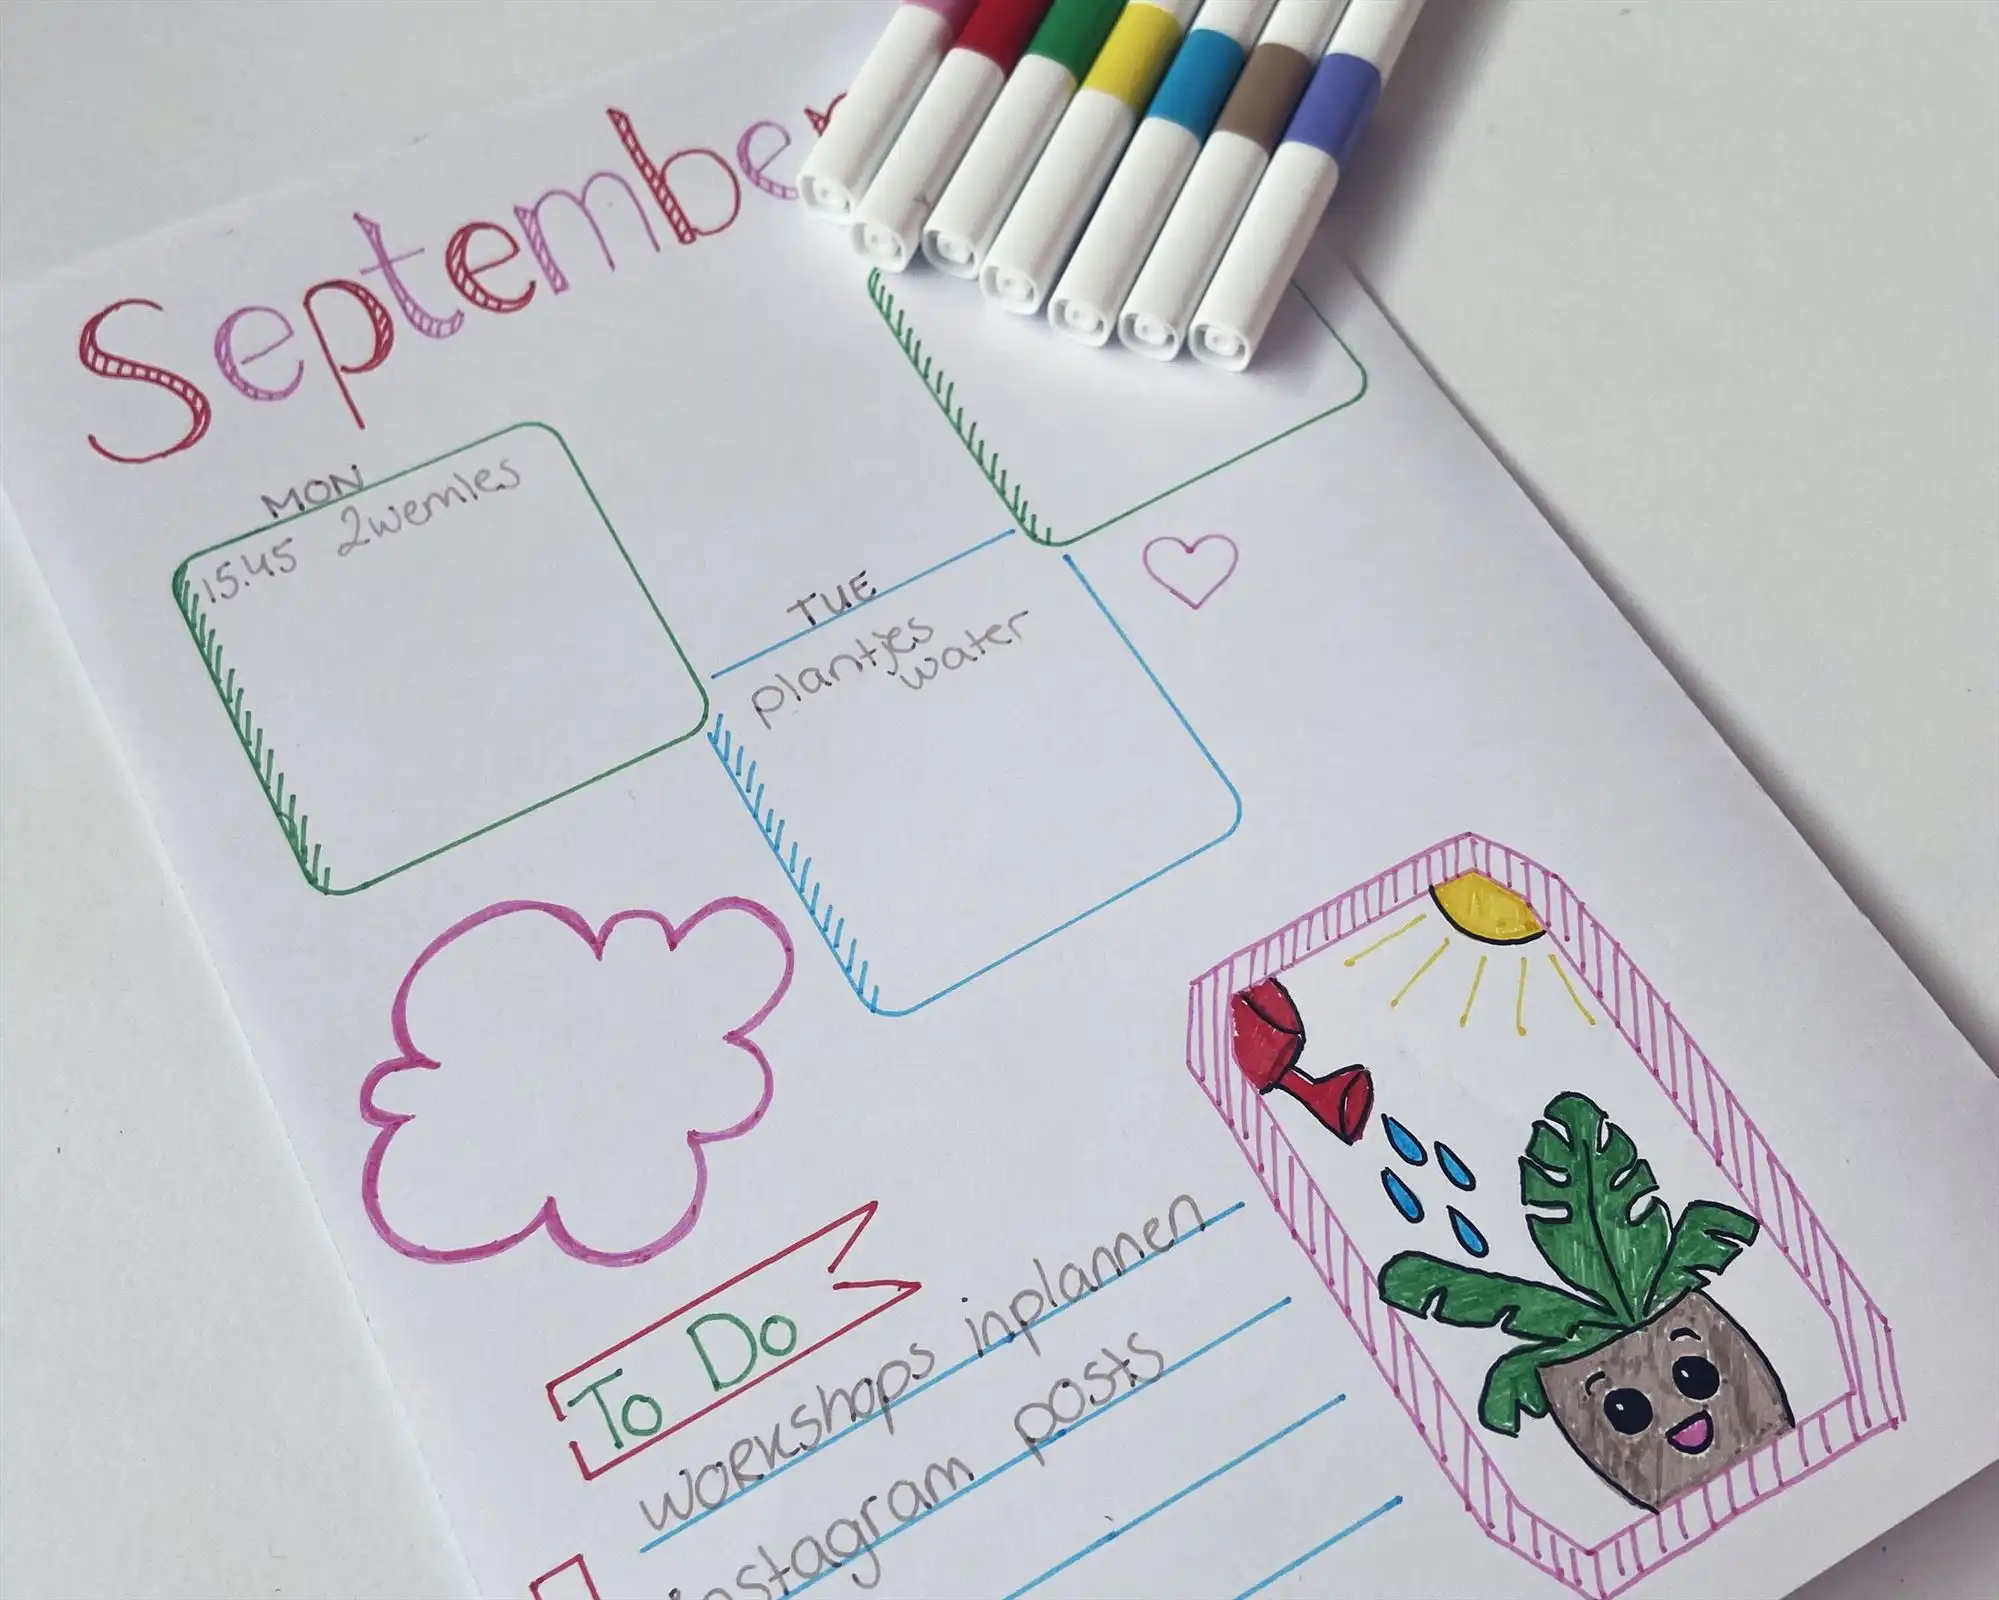 September
MON
15.45 2wemles
TUE
plantjes
water
To Do
workshops inplannen
instagram posts